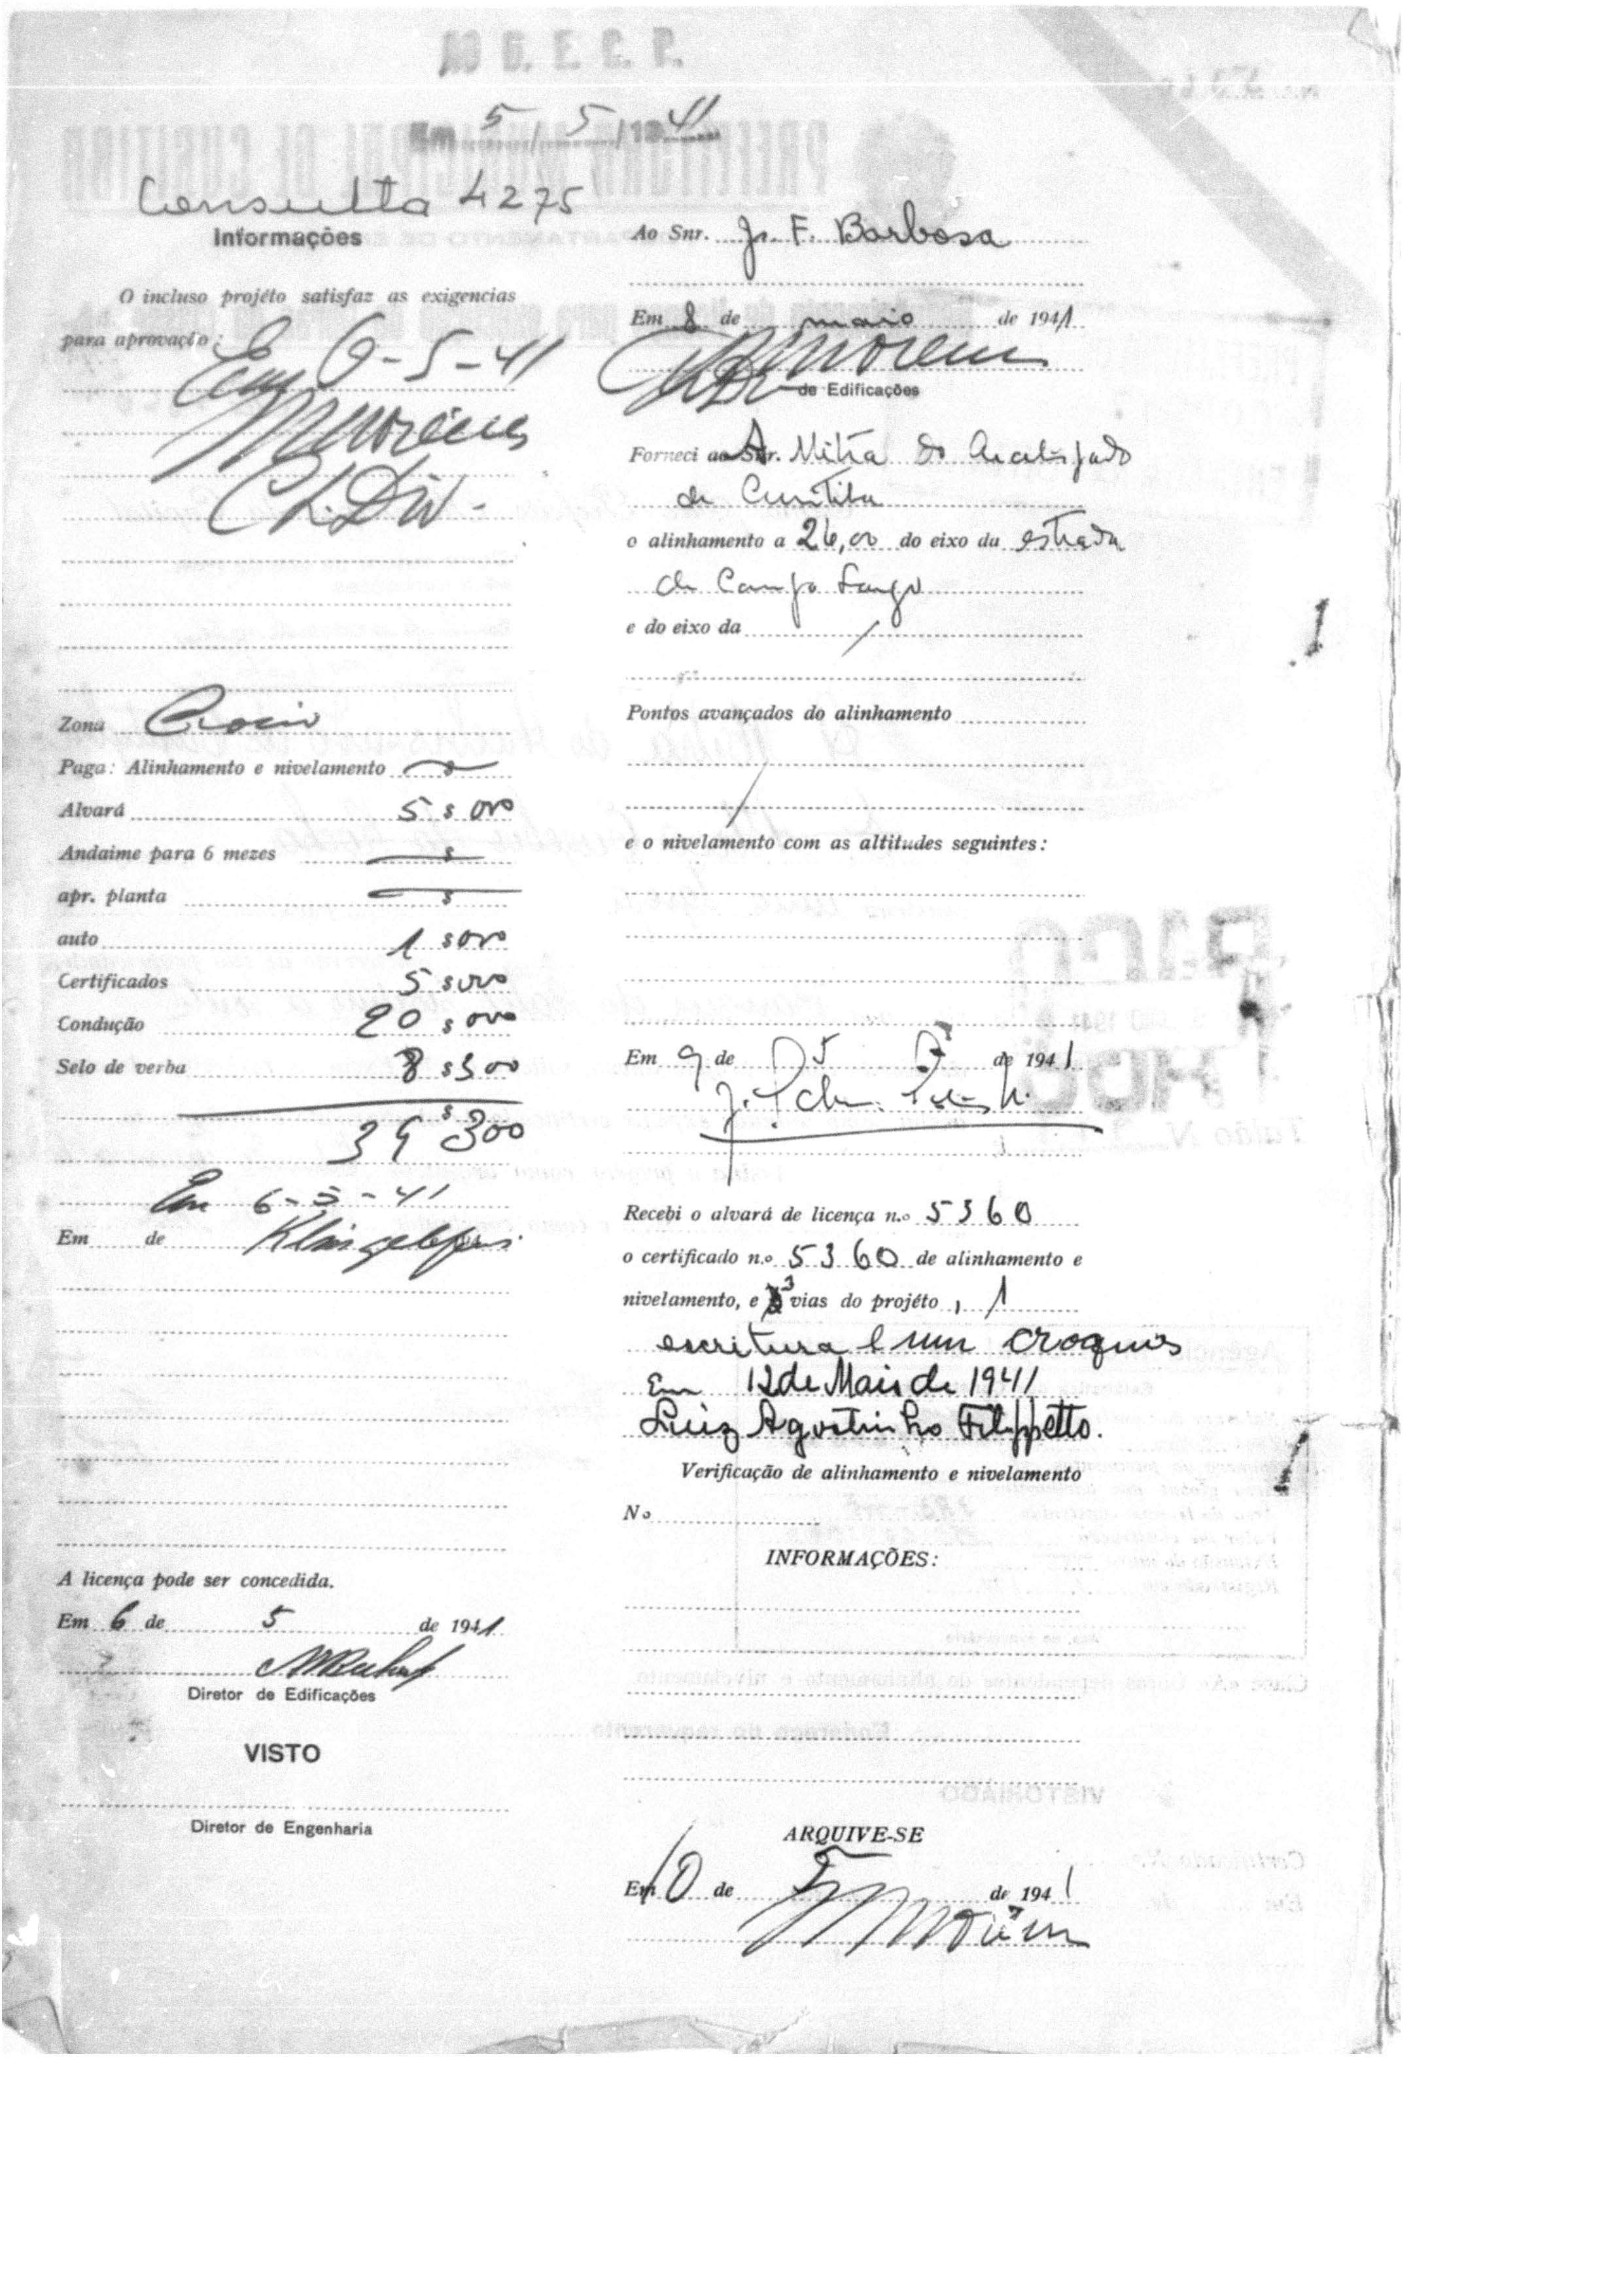 AO D. E. C. P.
Em 5 / 5 / 1941
Consulta 4275
Informações
O incluso projéto satisfaz as exigencias
para aprovação:
Em 6-5-41
Ch. Div.
Zona
Paga: Alinhamento e nivelamento $
Alvará 5 $ 000
Andaime para 6 mezes $
apr. planta $
auto 1 $ 000
Certificados 5 $ 000
Condução 20 $ 000
Selo de verba 8 $ 300
39 $ 300
Em 6-5-41
Em de
A licença pode ser concedida.
Em 6 de 5 de 1941
Diretor de Edificações
VISTO
Diretor de Engenharia
Ao Snr. J. F. Barbosa
Em 8 de maio de 1941
de Edificações
Forneci ao Snr. A Mitra do Arcebispado
de Curitiba
o alinhamento a 26,00 do eixo da estrada
de Campo Largo
e do eixo da
Pontos avançados do alinhamento
e o nivelamento com as altitudes seguintes:
Em 9 de 5 de 1941
Recebi o alvará de licença n.o 5360
o certificado n.o 5360 de alinhamento e
nivelamento, e 3 vias do projéto, 1
escritura e um croquis
Em 12 de Maio de 1941
Luiz Agostinho Filippetto.
Verificação de alinhamento e nivelamento
No
INFORMAÇÕES:
ARQUIVE-SE
Em 10 de 5 de 1941